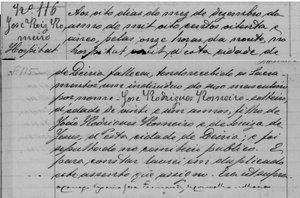 Nº 116
José Roiz Ro
meiro
Hospital
Aos oito dias do mez de dezembro do
anno de mil oito centos oitenta e
cinco, pelas onze horas da noite, no
hospital civil d'esta cidade de
de Leiria falleceu, tendo recebido os sacra
mentos um individuo do sexo masculino
por nome José Rodrigues Romeiro solteiro
de idade de annos, filho de
João Rodrigues Romeiro e de Luiza de
Jesus, d'esta cidade de Leiria, e foi
sepultado no cemiterio publico. E
para constar lavrei em duplicado
este assento que assigno. Era ut supra
José